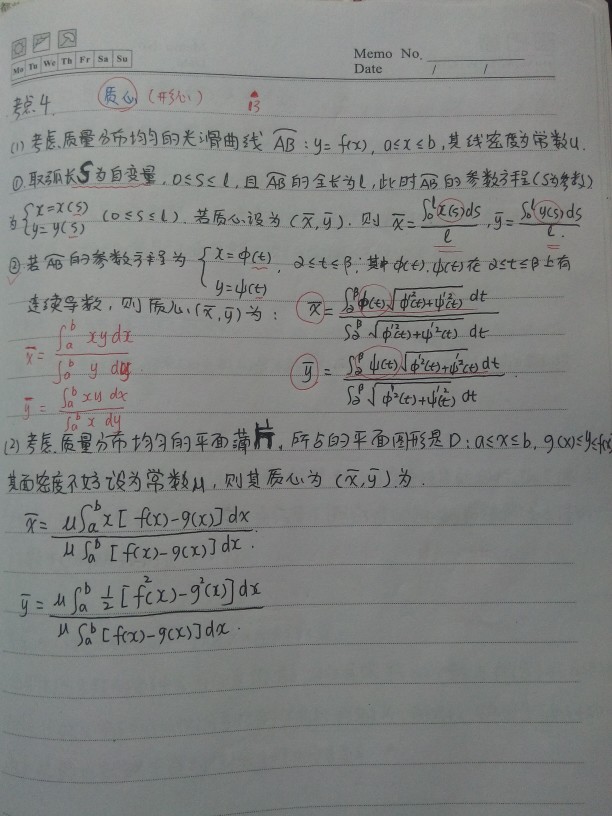 Memo No.
Mo Tu We Th Fr Sa Su
Date / /
考点4 质心 (形心) 13
(1) 考虑质量分布均匀的光滑曲线 AB: y=f(x), a≤x≤b, 其线密度为常数μ.
①取弧长S为自变量, 0≤s≤l, 且AB的全长为l, 此时AB的参数方程(S为参数)
为 {x=x(s) y=y(s) (0≤s≤l). 若质心设为 (x̄,ȳ). 则 x̄=∫₀ˡx(s)ds/l, ȳ=∫₀ˡy(s)ds/l.
②若AB的参数方程为 {x=φ(t) y=ψ(t), 2≤t≤β; 其中φ(t).ψ(t)在 2≤t≤β上有
连续导数, 则质心(x̄,ȳ)为: x̄=∫₂^β φ(t)√(φ'²(t)+ψ'²(t)) dt / ∫₂^β √(φ'²(t)+ψ'²(t)) dt
x̄=∫ₐᵇ xy dx / ∫ₐᵇ y dy
ȳ=∫₂^β ψ(t)√(φ'²(t)+ψ'²(t)) dt / ∫₂^β √(φ'²(t)+ψ'²(t)) dt
ȳ=∫ₐᵇ xy dx / ∫ₐᵇ x dy
(2)考虑质量分布均匀的平面薄片, 所占的平面图形是D: a≤x≤b, g(x)≤y≤f(x)
其面密度不妨设为常数μ, 则其质心为 (x̄,ȳ) 为.
x̄=μ∫ₐᵇ x[f(x)-g(x)]dx / μ∫ₐᵇ [f(x)-g(x)]dx.
ȳ=μ∫ₐᵇ ½[f²(x)-g²(x)]dx / μ∫ₐᵇ [f(x)-g(x)]dx.